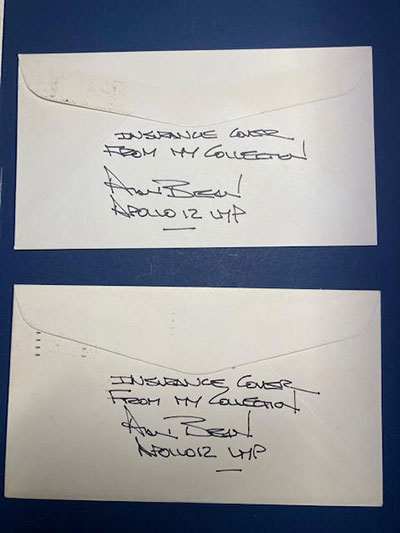 INSURANCE COVER
FROM MY COLLECTION
Alan Bean
APOLLO 12 LMP
INSURANCE COVER
FROM MY COLLECTION
Alan Bean
APOLLO 12 LMP